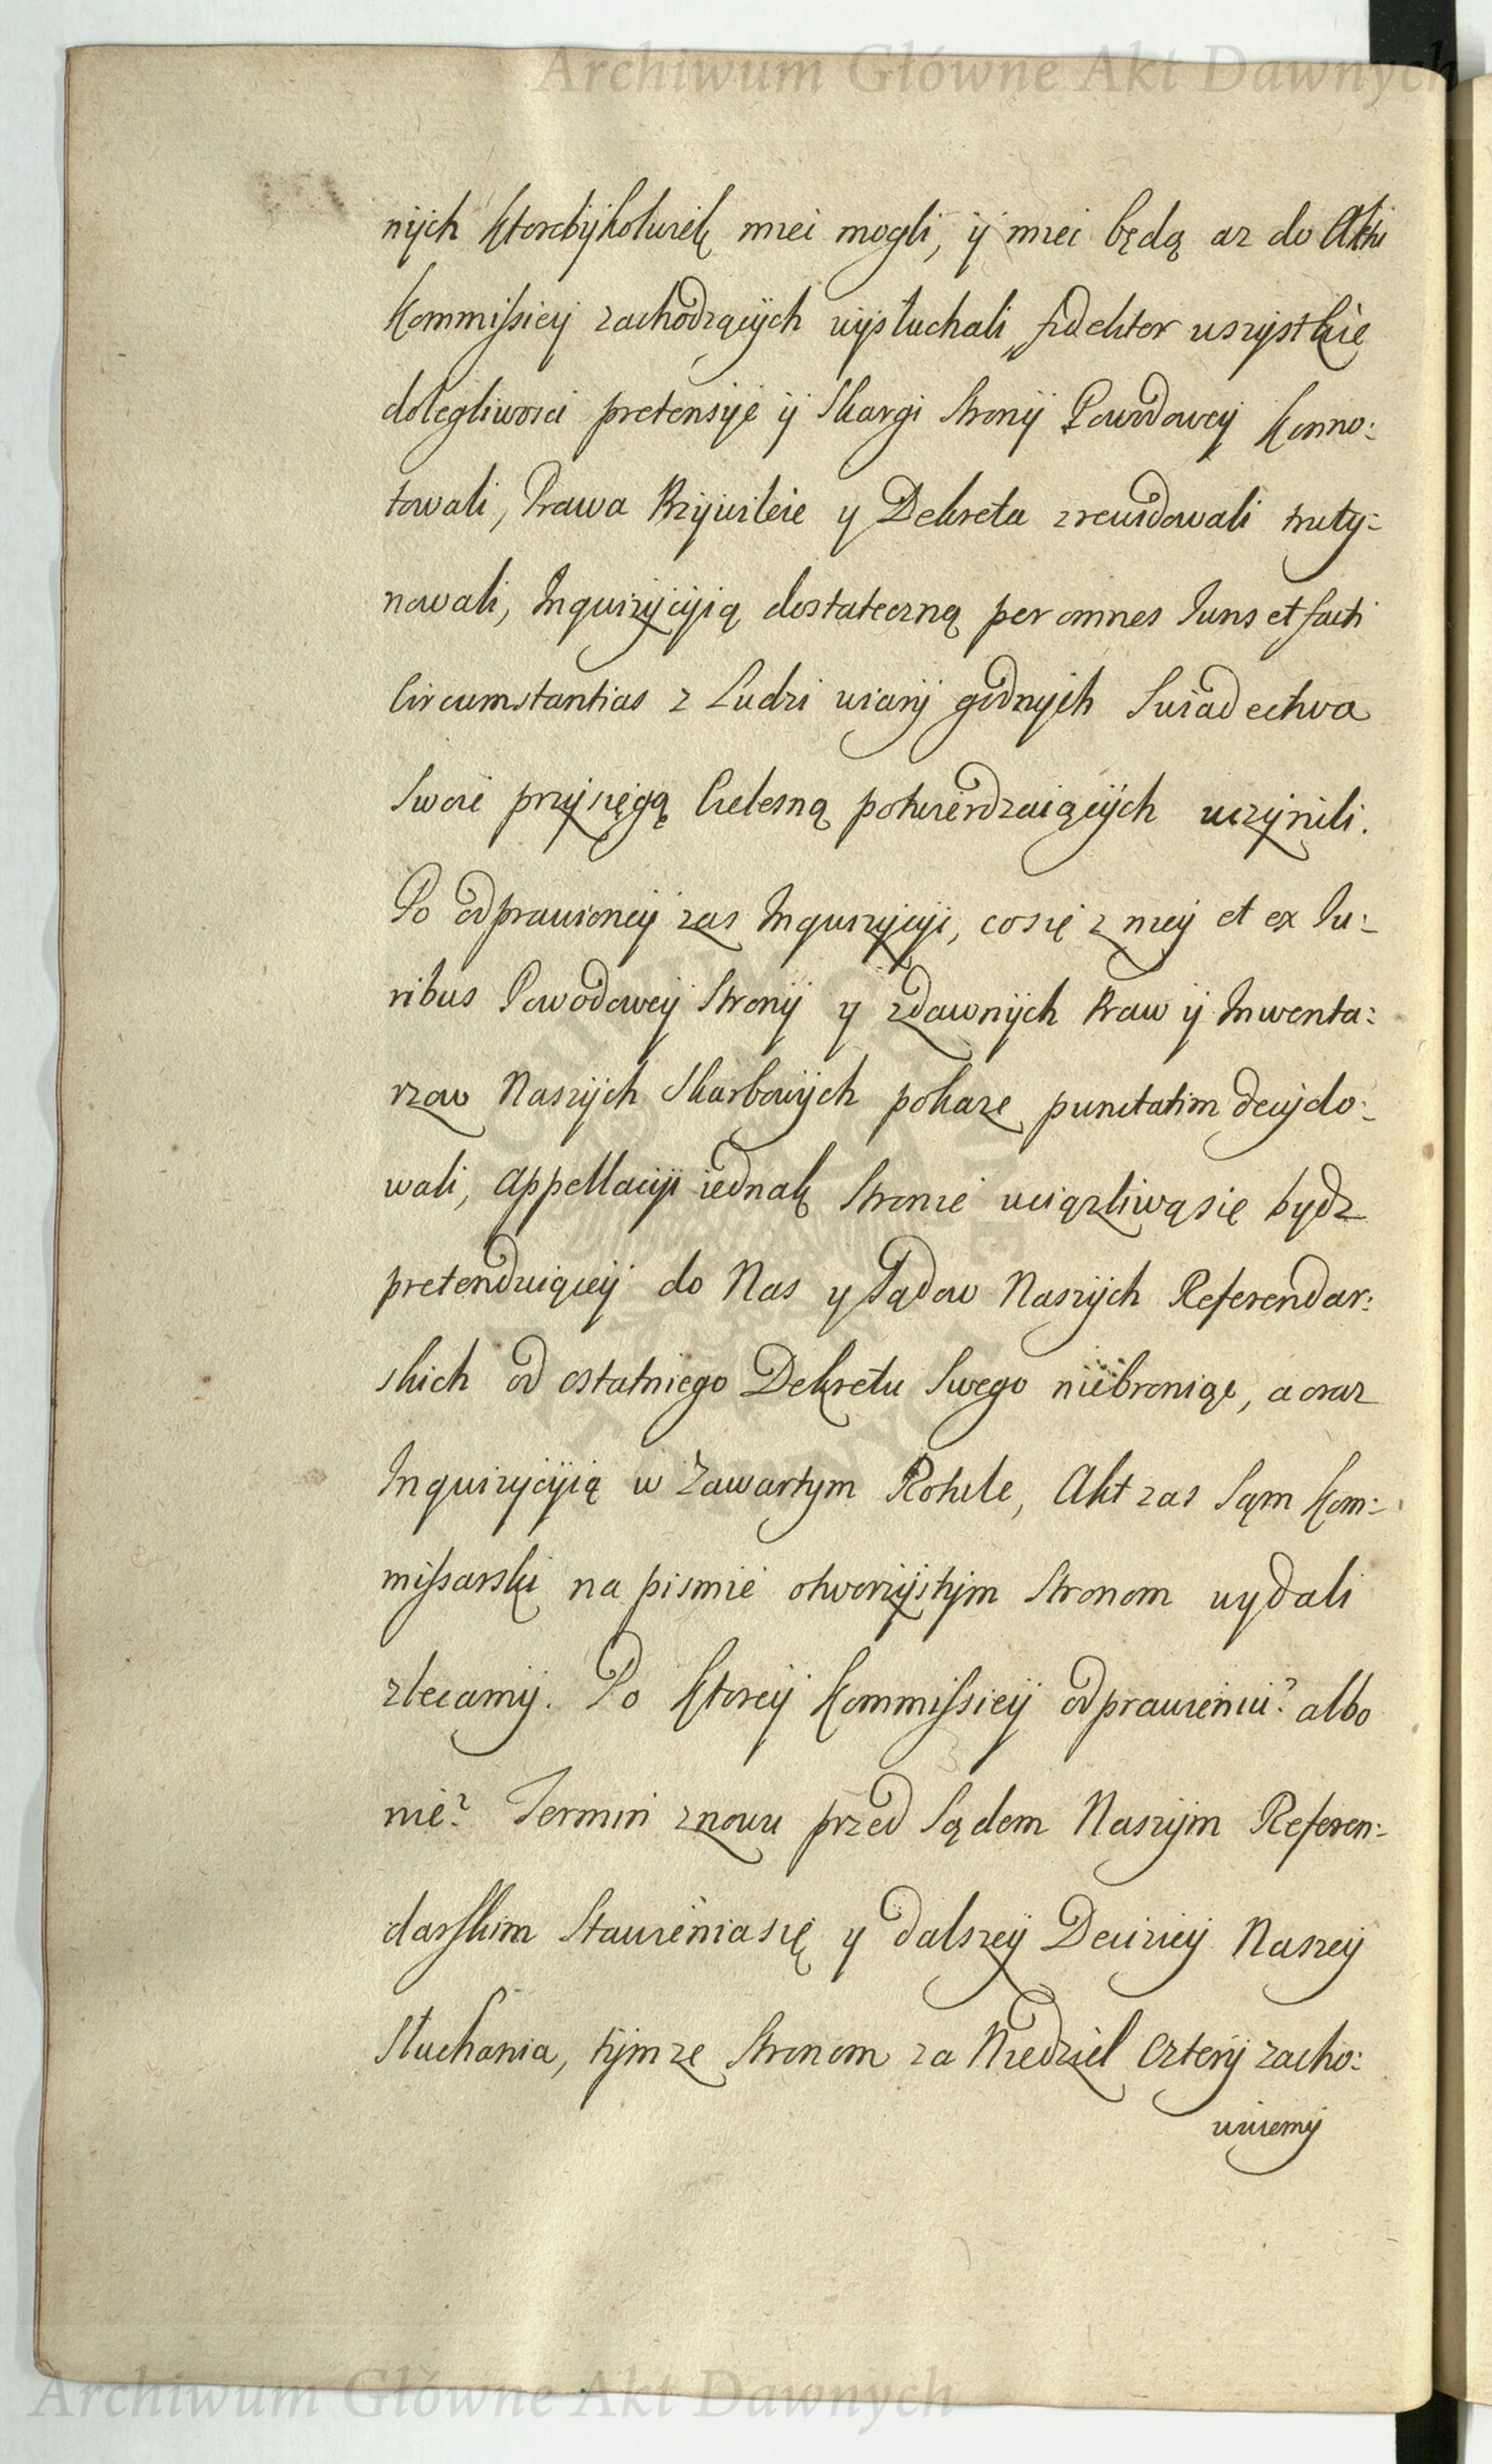 Archiwum Główne Akt Dawnych
nÿch ktorebÿkolwiek miei mogli, ÿ miei będą az do Aktu
Kommissiey zachodzącÿch wysłuchali, fideliter wszystkie
dolegliwosci pretensÿe ÿ Skargi Stronÿ Powodowey konno:
towali, Prawa Przÿwileie y Dekreta zrewidowali truty:
nowali, Inquizycyią dostateczną per omnes Iuris et facti
Circumstantias z Ludzi wiarÿ godnÿch Swiadectwa
Swoie przÿsięgą Cielesną potwierdzaiącÿch uczÿnili.
Po odprawioneÿ zas Inquizycyi, co się z nieÿ et ex Iu:
ribus Powodoweÿ Stronÿ y zdawnÿch Praw ÿ Inwenta:
rzow Naszÿch Skarbowÿch pokaze punctatim decÿdo:
wali, Appellacÿi iednak Stronie uciązliwą się bydz
pretenduiąceÿ do Nas y Sądow Naszÿch Referendar:
skich od ostatniego Dekretu Swego niebroniąc, a oraz
Inquizycyią w Zawartym Rotule, Akt zas Sąm Kom:
missarski na pismie otworzÿstÿm Stronom wydali
zlecamÿ. Po ktoreÿ Kommissieÿ odprawieniu? albo
nie? Termin znowu przed Sądem Naszÿm Referen:
darskim Stawienia się y dalszeÿ Decizieÿ Naszeÿ
Słuchania, tÿmze Stronom za Niedziel Czterÿ zacho:
wuiemÿ
Archiwum Główne Akt Dawnych